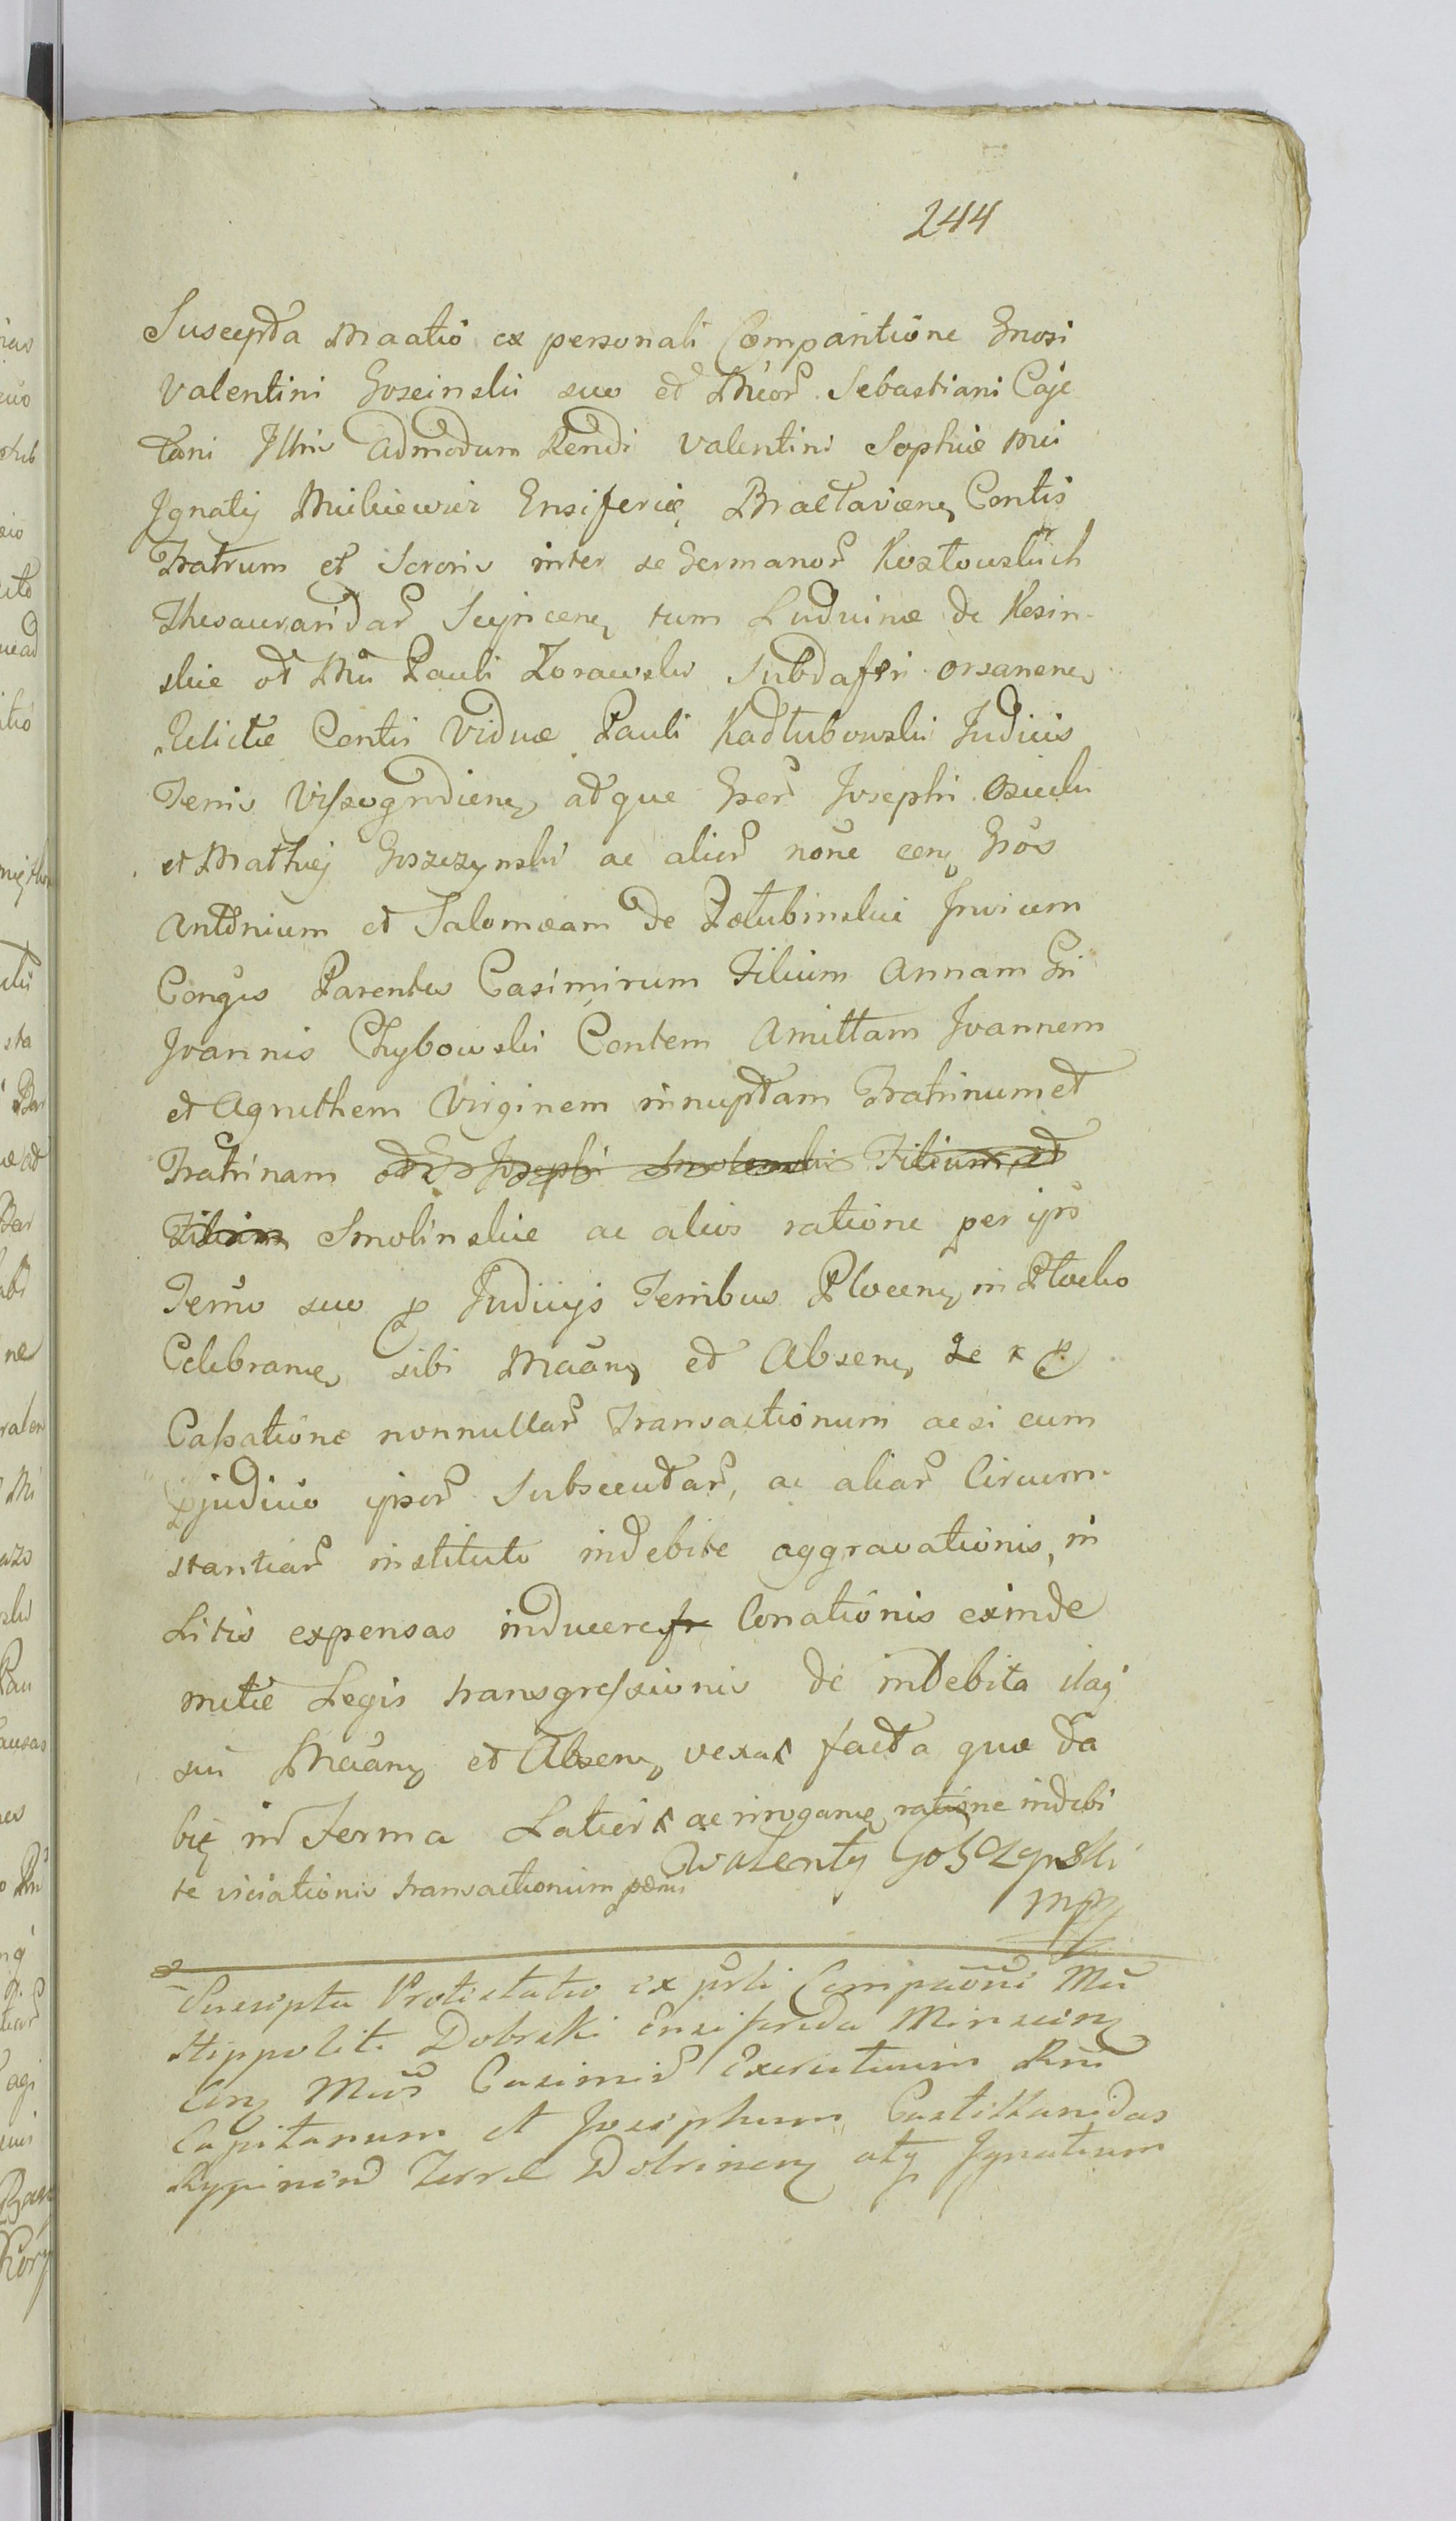 244
Suscepta Maatio ex personali Comparitione Gnosi
Valentini Goscinski suo et Micor Sebastiani Caje
tani Illris Admodum Rendi Valentini Sophiæ Mci
Ignatij Mickiewicz Ensiferiæ Braclaviens Contis
Fratrum et Sororis inter se Germanor Kozłowskich
Thesaurandar Scyricens tum Ludvinæ de Kesin-
skie et Mci Pauli Zorawski Subdafri Orsanens
Relictæ Contis Viduæ Pauli Kadłubowski Judicis
Terris Vissogrodiens atque Gser Josephi Osiecki
et Mathiej Goszczynski ac alior noie cens Gros
Antonium et Salomæam de Połubinskie Invicem
Conges Parentes Casimirum Filium Annam Gri
Joannis Chybowski Contem Amittam Joannem
et Agnethem Virginem innuptam Fratrinum et
Fratrinam et Josephi Filium et
Filiam Smolinskie ac alios ratione per ipos
Termo suo p Judicijs Terribus Plocens in Plocko
Celebrans sibi Maans et Absens
Cassatione nonnullar Transactionum acsi cum
pjudicio ipsor Subsecutar, ac aliar Circum-
stantiar instituto indebite aggravationis, in
Litis expensas inducere Conationis exinde
metiæ Legis transgressionis de indebita itaq
sui Maans et Absens vexa facta quæ da
bit in Terma Latior ac irrogans ratione indebi
te viciationis transactionum pœnis
Walenty Goszczynski
mp
Suscepta Protestatio ex prli Compaõne Mci
Hippoliti Dobrski Ensiferida Minscens
Cens Mcos Casimir Exercituum Rni
Capitanum et Josephum Castellanidas
Rypinens Terræ Dobrinens atq Ignatium